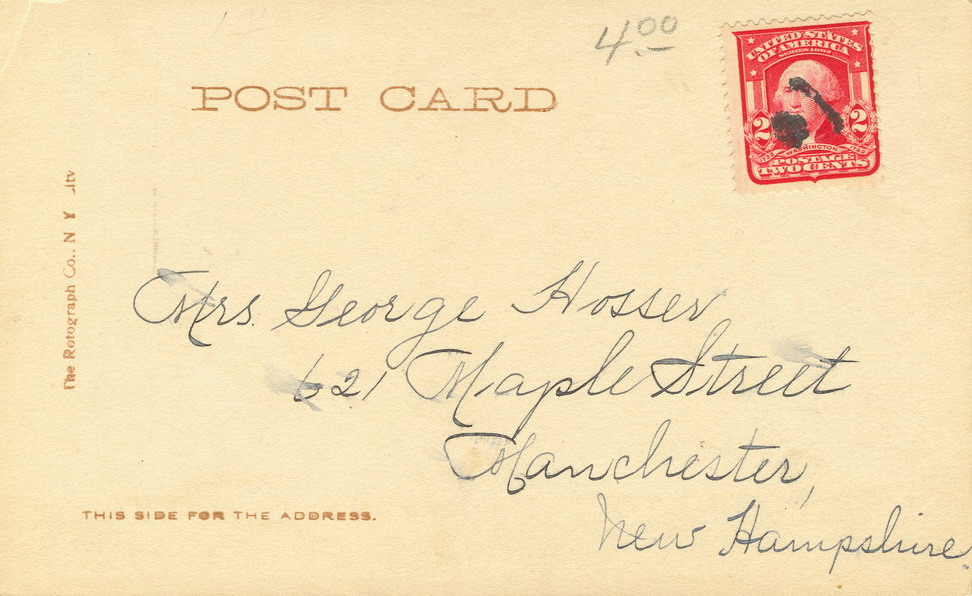 4.00
UNITED STATES
OF AMERICA
SERIES 1902
2 2
1732 WASHINGTON 1799
POSTAGE
TWO CENTS
POST CARD
The Rotograph Co., N Y City
Mrs. George Hosser
621 Maple Street
Manchester,
New Hampshire
THIS SIDE FOR THE ADDRESS.